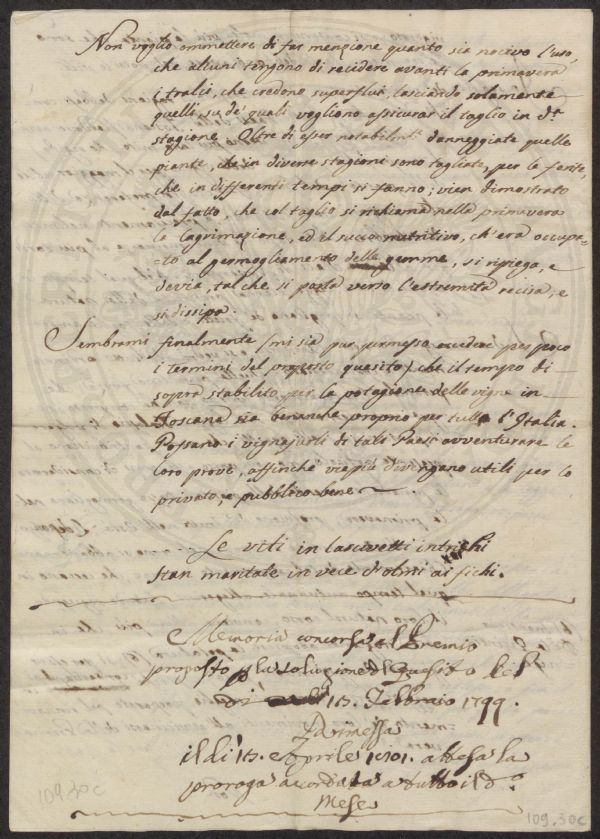 Non voglio ommettere di far menzione quanto sia nocivo l'uso,
che alcuni tengono di recidere avanti la primavera
i tralci, che credono superflui lasciando solamente
quelli, su de' quali vogliono assicurar il taglio in d.ta
stagione. Oltre di esser notabilm.te danneggiate quelle
piante, che in diverse stagioni sono tagliate, per le ferite,
che in differenti tempi si fanno; vien dimostrato
dal fatto, che col taglio si richiama nella primavera
la lagrimazione, ed il succo nutritivo, ch'era occupa-
-to al germogliamento delle gemme, si ripiega, e
devia, tal che si porta verso l'estremità recisa, e
si dissipa.
Sembrami finalmente (mi sia pur permesso eccedere per poco
i termini del proposto quesito) che il tempo di
sopra stabilito per la potagione delle vigne in
Toscana sia benanche proprio per tutta l'Italia.
Possano i vignajuoli di tali Paesi avventurare le
loro prove, affinchè viepiù divengano utili per lo
privato, e pubblico bene
... Le viti in lascivetti intrichi
Stan maritate in vece d'olmi ai fichi.
Memoria concorsa al Premio
proposto p la soluzione del Quesito
di 15. Febbraio 1799.
Rimessa
il dì 15. Aprile 1801. attesa la
proroga accordata a tutto il d.o
Mese
109.30c
109.30c